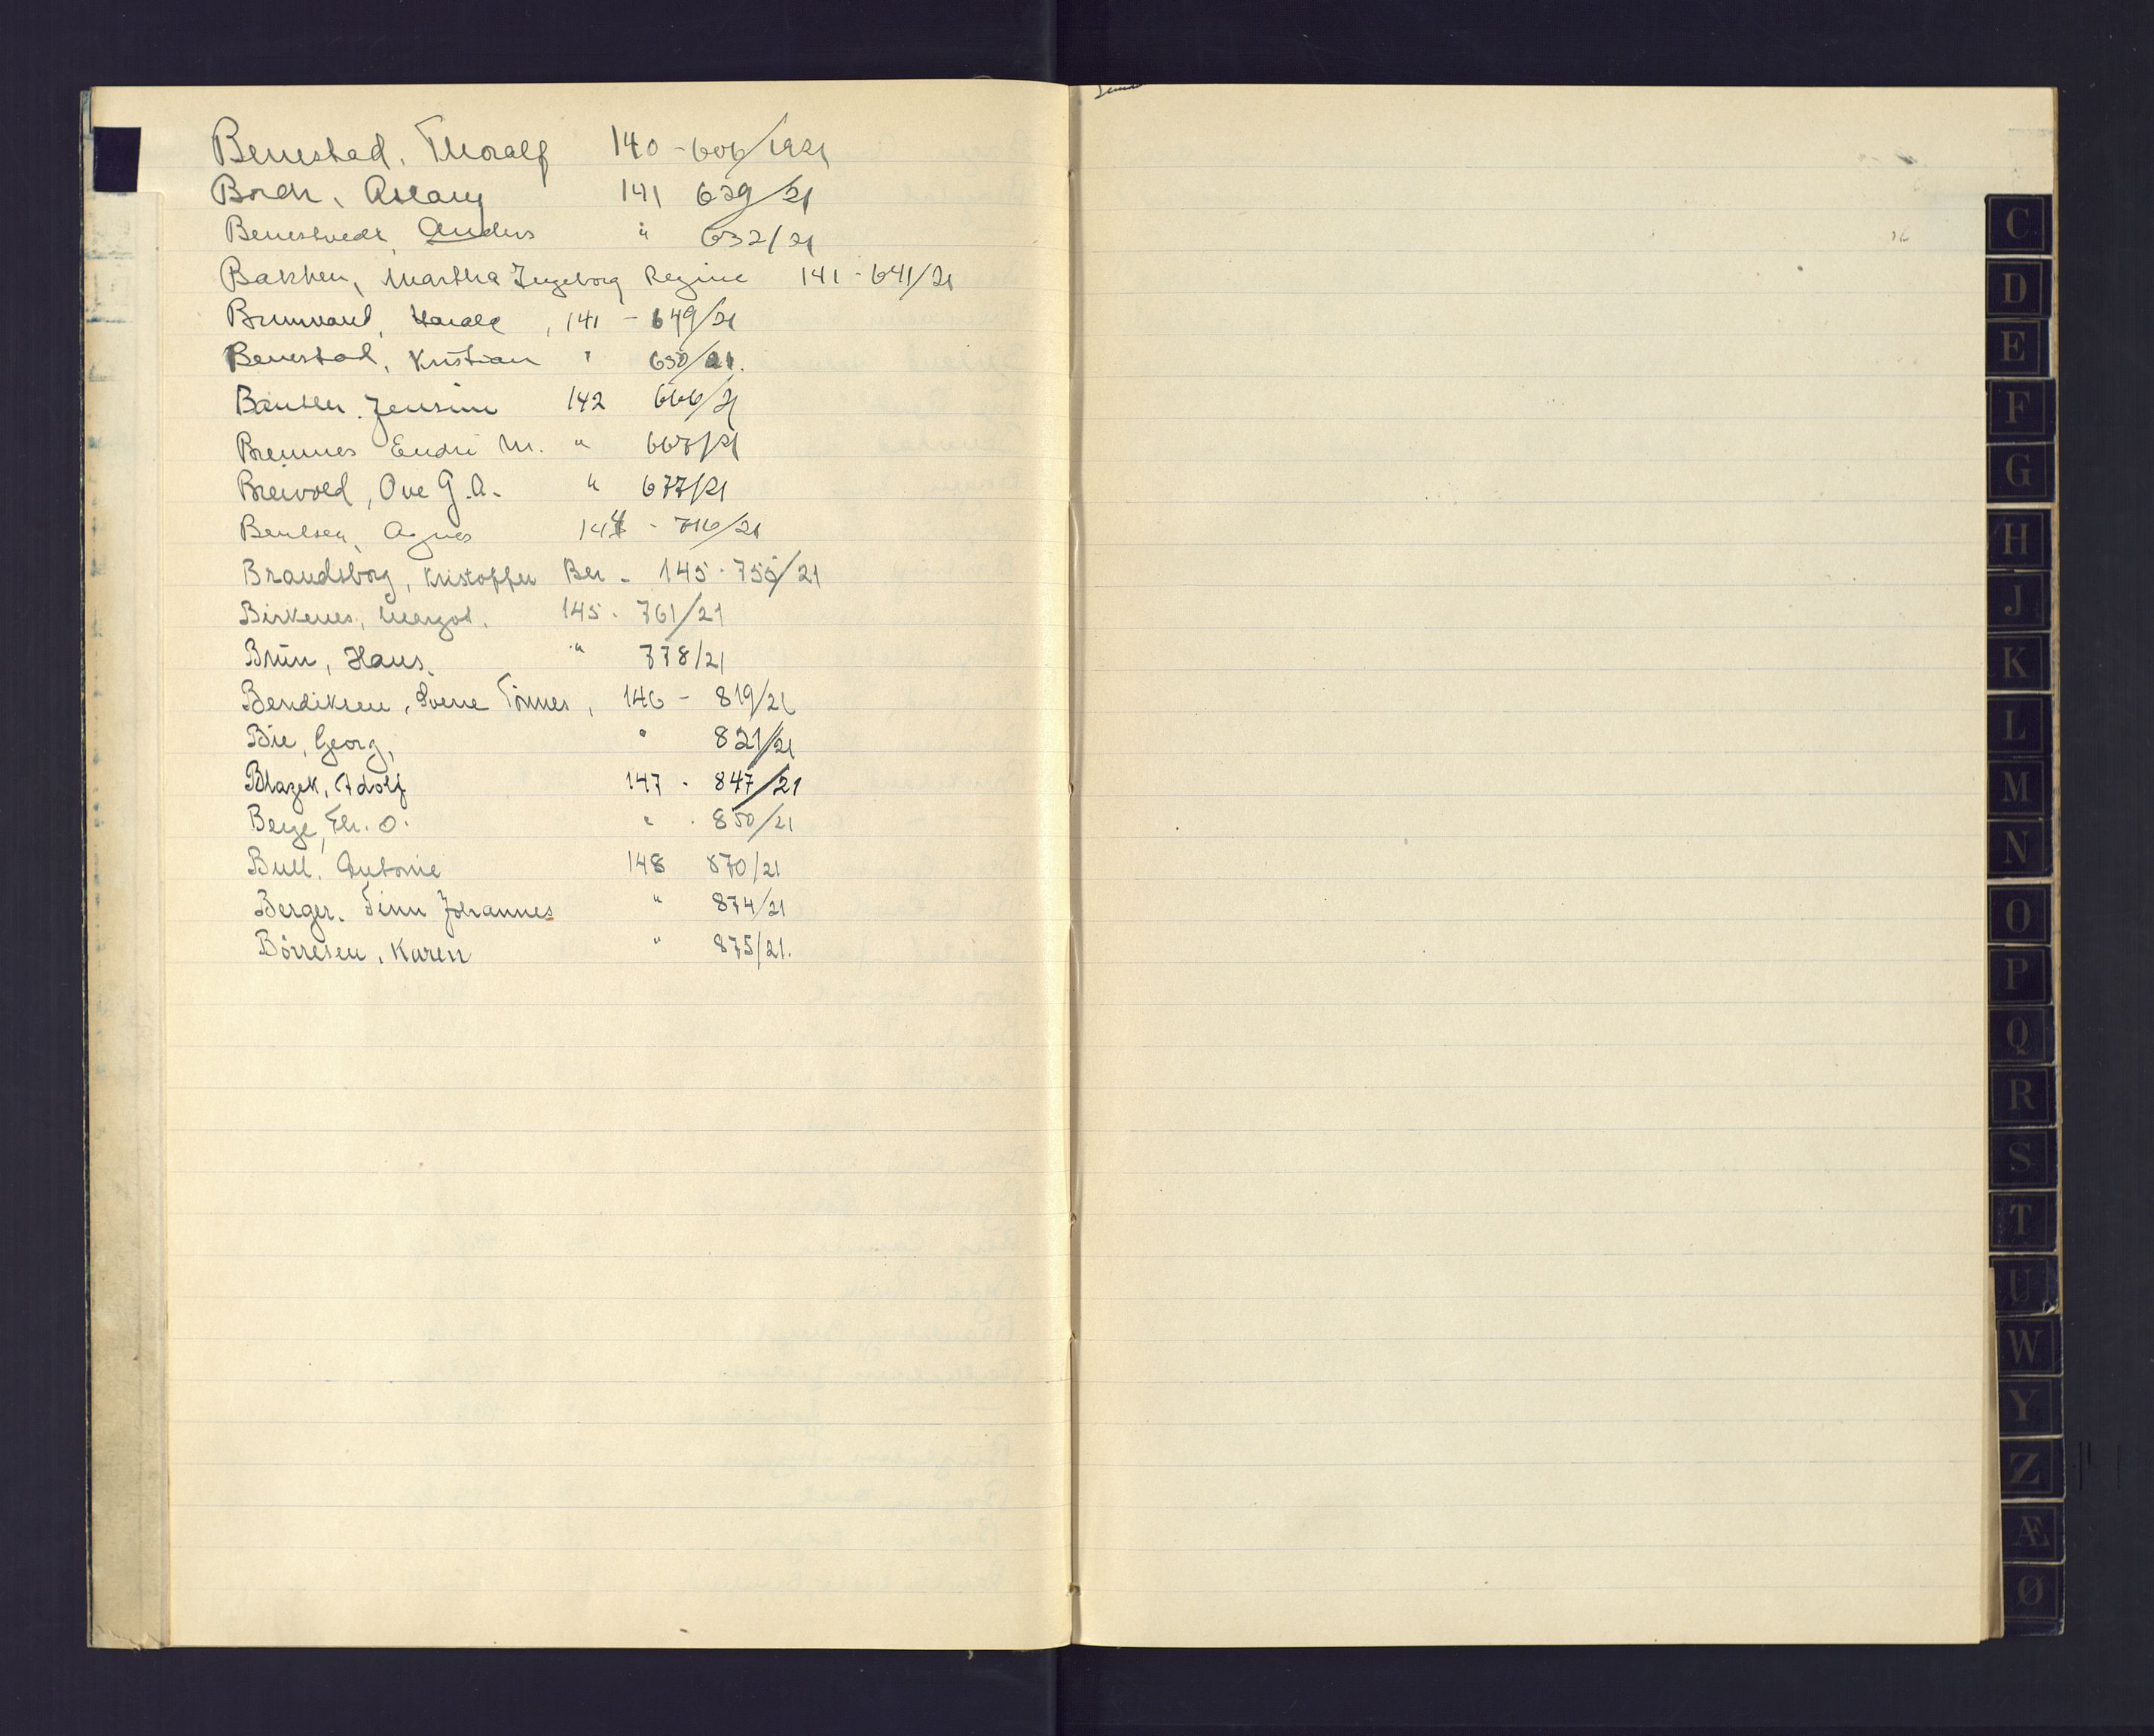 Benestad, Thoralf 140 - 606/1921
Borch, Aslaug 141 629/21
Benestvedt, Anders " 632/21
Bakken, Martha Ingeborg Regine 141 - 641/21
Brunvand, Harald, 141 - 649/21
Benestad, Kristian " 650/21.
Jensine 142 666/21
Bremnes Endre M. " 667/21
Breivold, Ove G. A. " 677/21
Berntsen, Agnes 144 - 716/21
Brandsborg, Kristoffer Ber - 145 - 755/21
Birkenes, Margot. 145 - 761/21
Brün, Hans. " 778/21
Bendiksen, Sverre Tönnes, 146 - 819/21
Bie, Georg, " 821/21
Blazek, Adolf 147 - 847/21
Berge, Th. O. " - 850/21
Bull, Antonie 148 870/21
Berger. Finn Johannes " 874/21
Börresen, Karen " 875/21.
C
D
E
F
G
H
J
K
L
M
N
O
P
Q
R
S
T
U
W
Y
Z
Æ
Ø